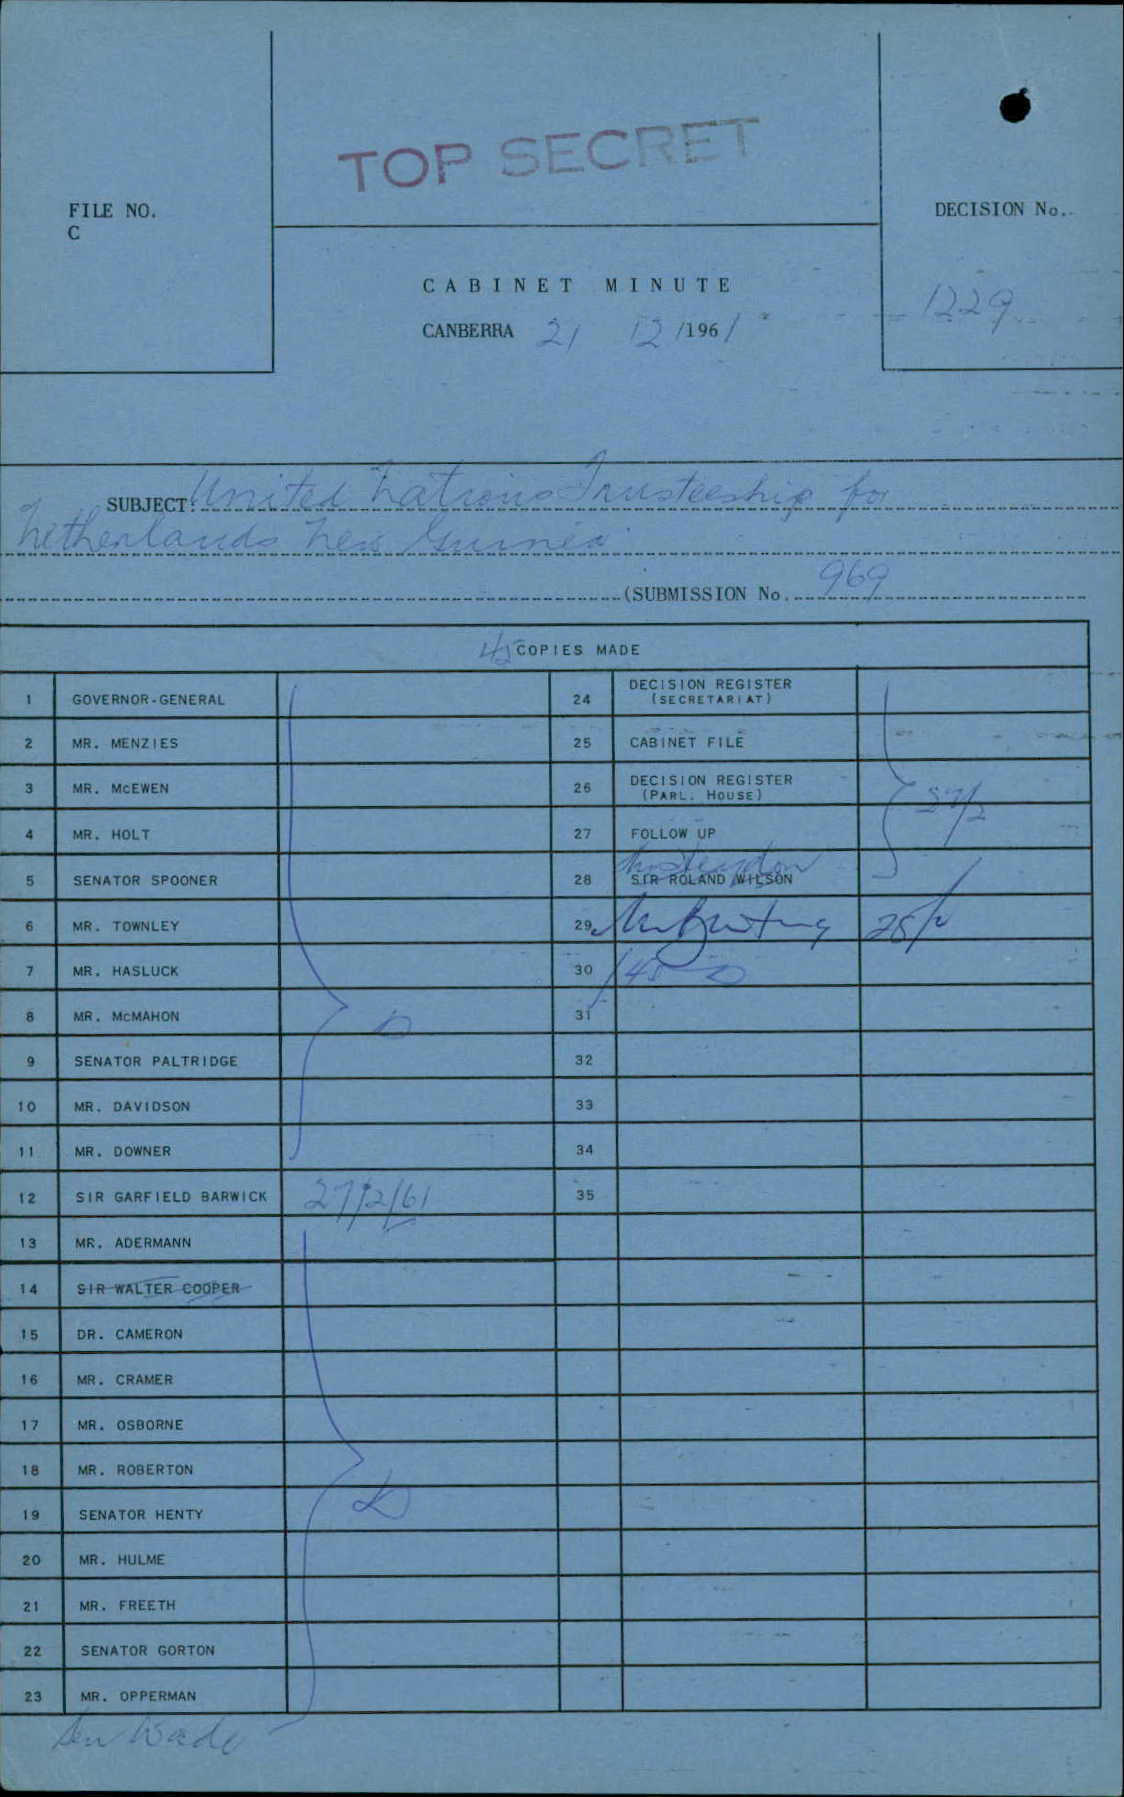 TOP SECRET
FILE NO.
C
DECISION No.
1229
CABINET MINUTE
CANBERRA 21 12/1961
SUBJECT: United Nations Trusteeship for
Netherlands New Guinea
(SUBMISSION No. 969
45 COPIES MADE
1 GOVERNOR-GENERAL
2 MR. MENZIES
3 MR. McEWEN
4 MR. HOLT
5 SENATOR SPOONER
6 MR. TOWNLEY
7 MR. HASLUCK
8 MR. McMAHON
9 SENATOR PALTRIDGE
10 MR. DAVIDSON
11 MR. DOWNER
12 SIR GARFIELD BARWICK 27/2/61
13 MR. ADERMANN
14 SIR WALTER COOPER
15 DR. CAMERON
16 MR. CRAMER
17 MR. OSBORNE
18 MR. ROBERTON
19 SENATOR HENTY
20 MR. HULME
21 MR. FREETH
22 SENATOR GORTON
23 MR. OPPERMAN
Sen Wade
24 DECISION REGISTER
(SECRETARIAT)
25 CABINET FILE
26 DECISION REGISTER
(PARL. HOUSE)
27 FOLLOW UP
28 SIR ROLAND WILSON
29 Mr Bunting
30
31
32
33
34
35